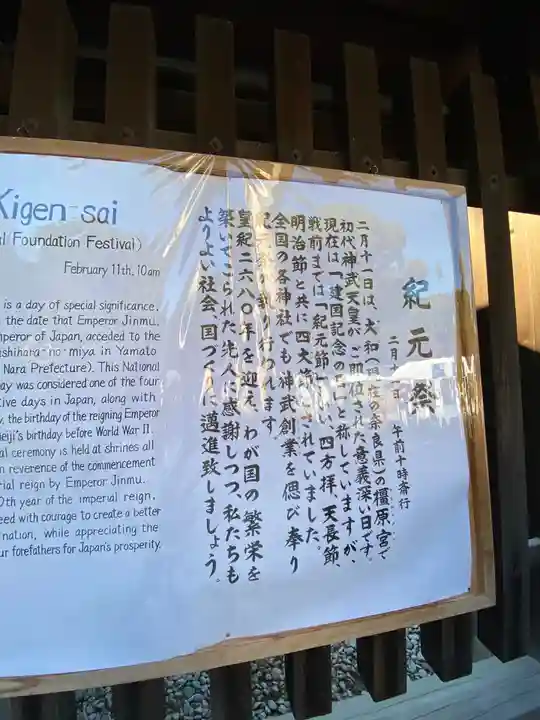 紀元祭
二月十一日 午前十時斎行
二月十一日は、大和(現在の奈良県)の橿原宮で
初代神武天皇が、ご即位された意義深い日です。
現在は「建国記念の日」と称していますが、
戦前までは「紀元節」といい、四方拝、天長節、
明治節と共に四大節とされていました。
全国の各神社でも神武創業を偲び奉り
紀元祭が執り行われます。
皇紀二六八〇年を迎え、わが国の繁栄を
築いてこられた先人に感謝しつつ、私たちも
よりよい社会、国づくりに邁進致しましょう。
Kigen-sai
l Foundation Festival)
February 11th, 10am
is a day of special significance,
the date that Emperor Jinmu,
mperor of Japan, acceded to the
ashihara-no-miya in Yamato
Nara Prefecture). This National
ay was considered one of the four
tive days in Japan, along with
y, the birthday of the reigning Emperor
Meiji's birthday before World War II.
al ceremony is held at shrines all
n reverence of the commencement
rial reign by Emperor Jinmu.
0th year of the imperial reign,
eed with courage to create a better
nation, while appreciating the
ur forefathers for Japan's prosperity.